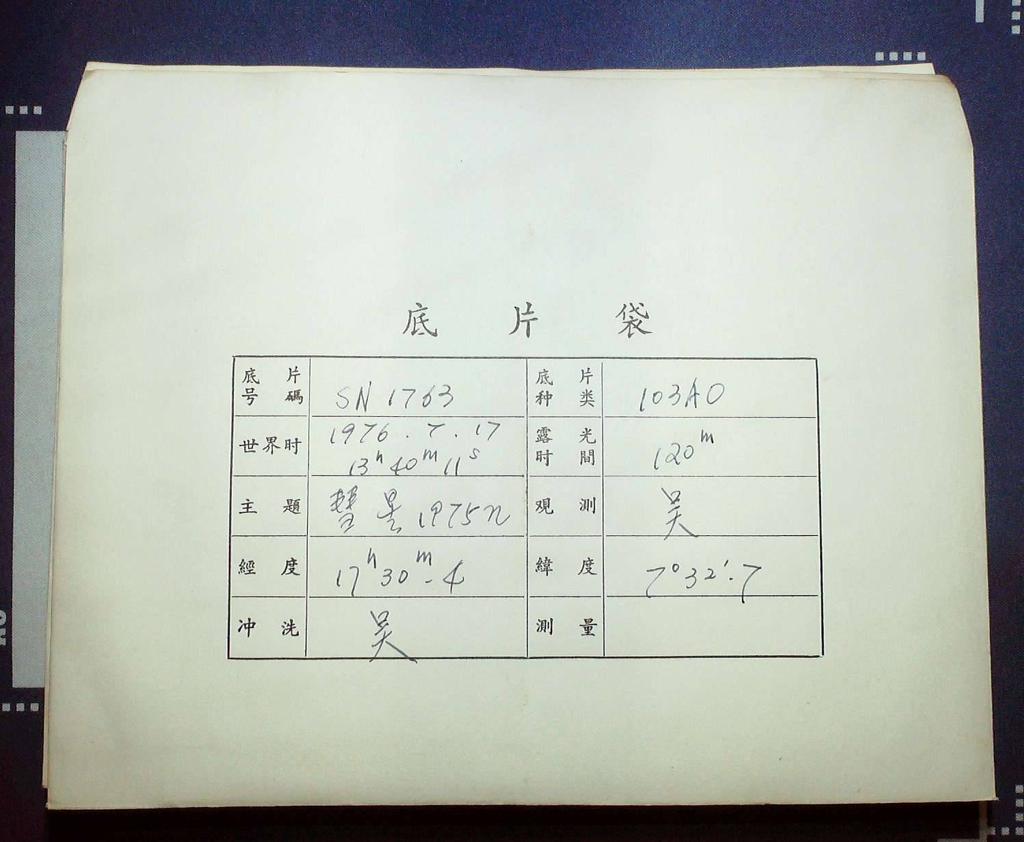 底片袋
底片号碼 SN 1763 底片种类 103AO
世界时 1976.7.17 13h 40m 11s 露光时間 120m
主題 彗星 1975n 观測 吴
經度 17h 30m.4 緯度 7°32'.7
冲洗 吴 測量